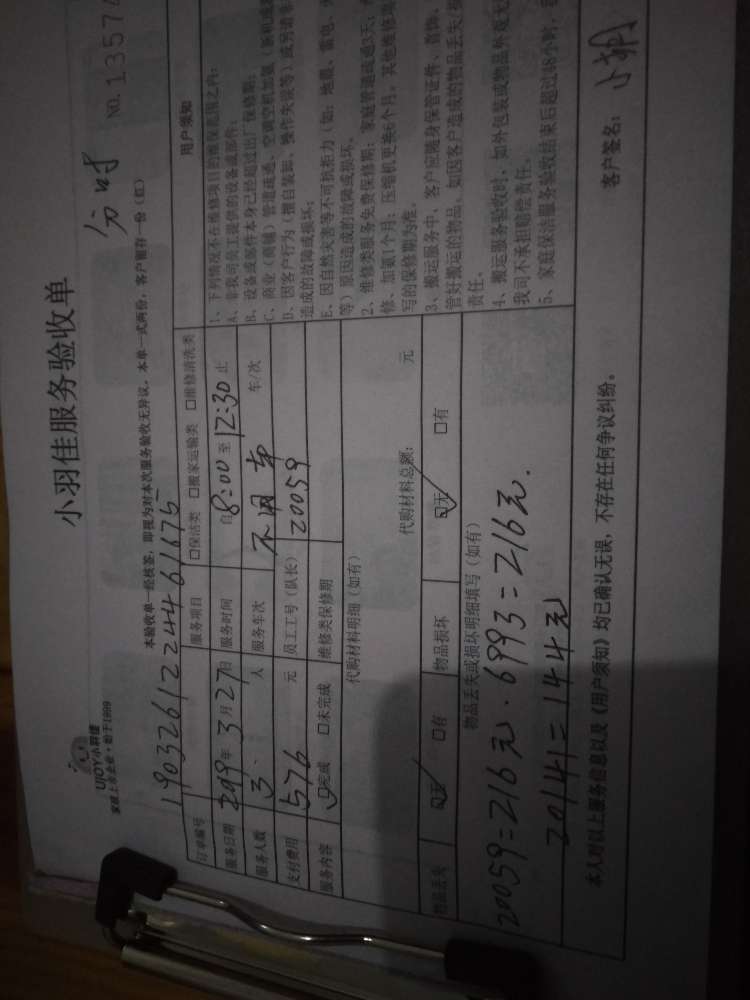 小羽佳服务验收单
分时
UJOY小羽佳
家政上市企业·始于1999
NO. 13574
本验收单一经核签，即视为对本次服务验收无异议。本单一式两份，客户留存一份（红）
订单编号 1903261224461675
服务项目 □保洁类 □搬家运输类 □维修清洗类
服务日期 2019年3月27日 服务时间 自8:00至12:30止
服务人数 3 人 服务车次 不用车 车/次
支付费用 576 元 员工工号（队长） 20059
服务内容 ☑完成 □未完成 维修类保修期
代购材料明细（如有）
代购材料总额： 元
物品丢失 ☑无 □有 物品损坏 ☑无 □有
物品丢失或损坏明细填写（如有）
20059=216元. 6993=216元.
20141=144元
用户须知
1、下列情况不在维修项目的维保范围之内：
A、非我司员工提供的设备或部件；
B、设备或部件本身已经超过出厂保修期；
C、商业（商铺）管道疏通、空调空机加氨
D、因客户行为（擅自装卸、操作失误等）或另请
造成的故障或损坏；
E、因自然灾害等不可抗拒力（如：地震、雷电、
等）原因造成的故障或损坏。
2、维修类服务免费保修期：家庭管道疏通3天；
修、加氟1个月；压缩机更换6个月。其他维修
写的保修期为准。
3、搬运服务中，客户应随身保管证件、首饰、
管好搬运的物品，如因客户造成的物品丢失
责任。
4、搬运服务验收时，如外包装或物品外观无
我司不承担赔偿责任。
5、家庭保洁服务验收结束后超过48小时，
本人对以上服务信息以及《用户须知》均已确认无误，不存在任何争议纠纷。
客户签名：